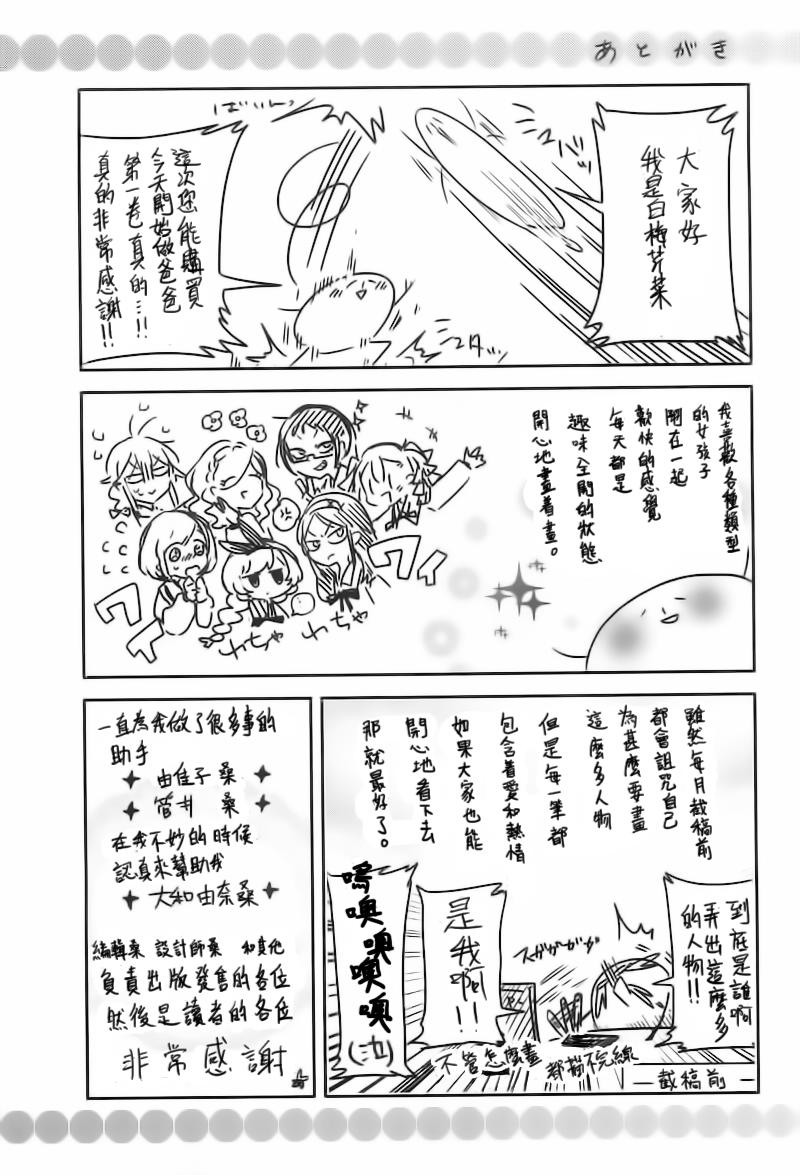 あとがき
大家好
我是白梅芹菜
ズバッ
ばいんっ
這次您能購買
今天開始做爸爸
第一卷真的…!!
真的非常感謝!!
我喜歡各種類型
的女孩子
鬧在一起
歡快的感覺
每天都是
趣味全開的狀態
開心地畫着畫。
ワイ
ワイ
わちゃ
わちゃ
雖然每月截稿前
都會詛咒自己
為甚麼要畫
這麼多人物
但是每一筆都
包含着愛和熱情
如果大家也能
開心地看下去
那就最好了。
到底是誰啊
弄出這麼多
的人物!!
スガガガガガ
是我啊!!
嗚噢噢噢噢(泣)
不管怎麼畫
都畫不完線
—截稿前—
一直為我做了很多事的
助手
由佳子 桑
管井 桑
在我不妙的時候
認真來幫助我
大和由奈桑
編輯桑 設計師桑 和其他
負責出版發售的各位
然後是讀者的各位
非常感謝